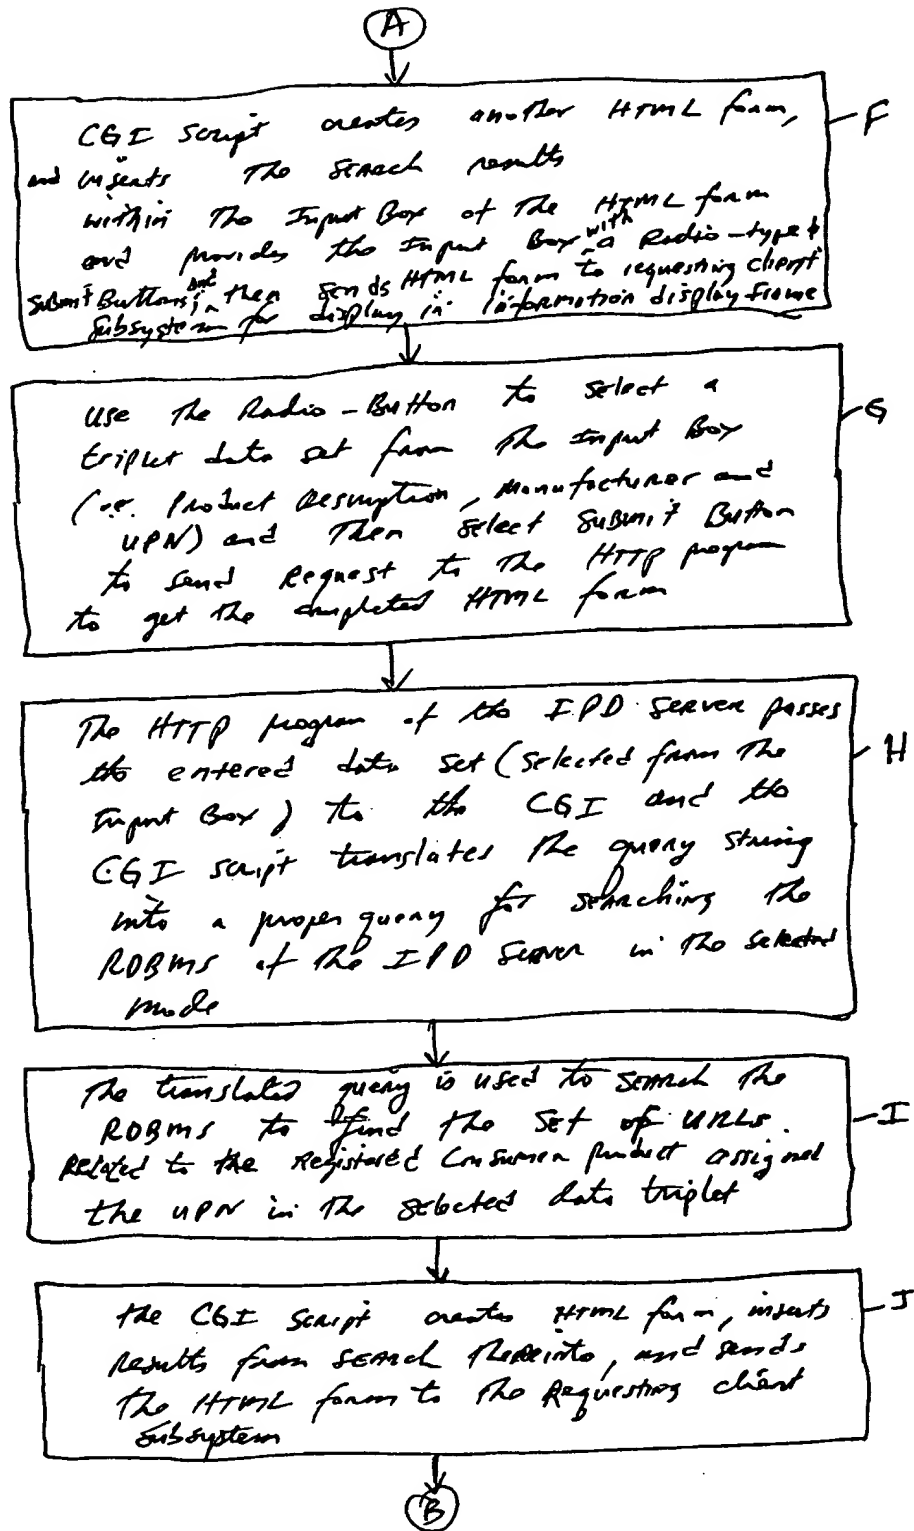 A
CGI Script creates another HTML form, F
and inserts the search results
within the Input Box of the HTML form
and provides the Input Box with a Radio-type &
Submit Buttons; and then sends HTML form to requesting client
subsystem for display in information display frame
Use the Radio-Button to select a G
triplet data set from the Input Box
(i.e. Product Description, Manufacturer and
UPN) and then select Submit Button
to send Request to the HTTP program
to get the completed HTML form
The HTTP program of the IPD Server passes
the entered data set (selected from the H
Input Box) to the CGI and the
CGI script translates the query string
into a proper query for searching the
RDBMS of the IPD Server in the selected
mode
The translated query is used to search the
RDBMS to find the set of URLs I
Related to the registered Consumer product assigned
the UPN in the selected data triplet
the CGI Script creates HTML form, inserts J
results from search thereinto, and sends
the HTML form to the Requesting client
subsystem
B